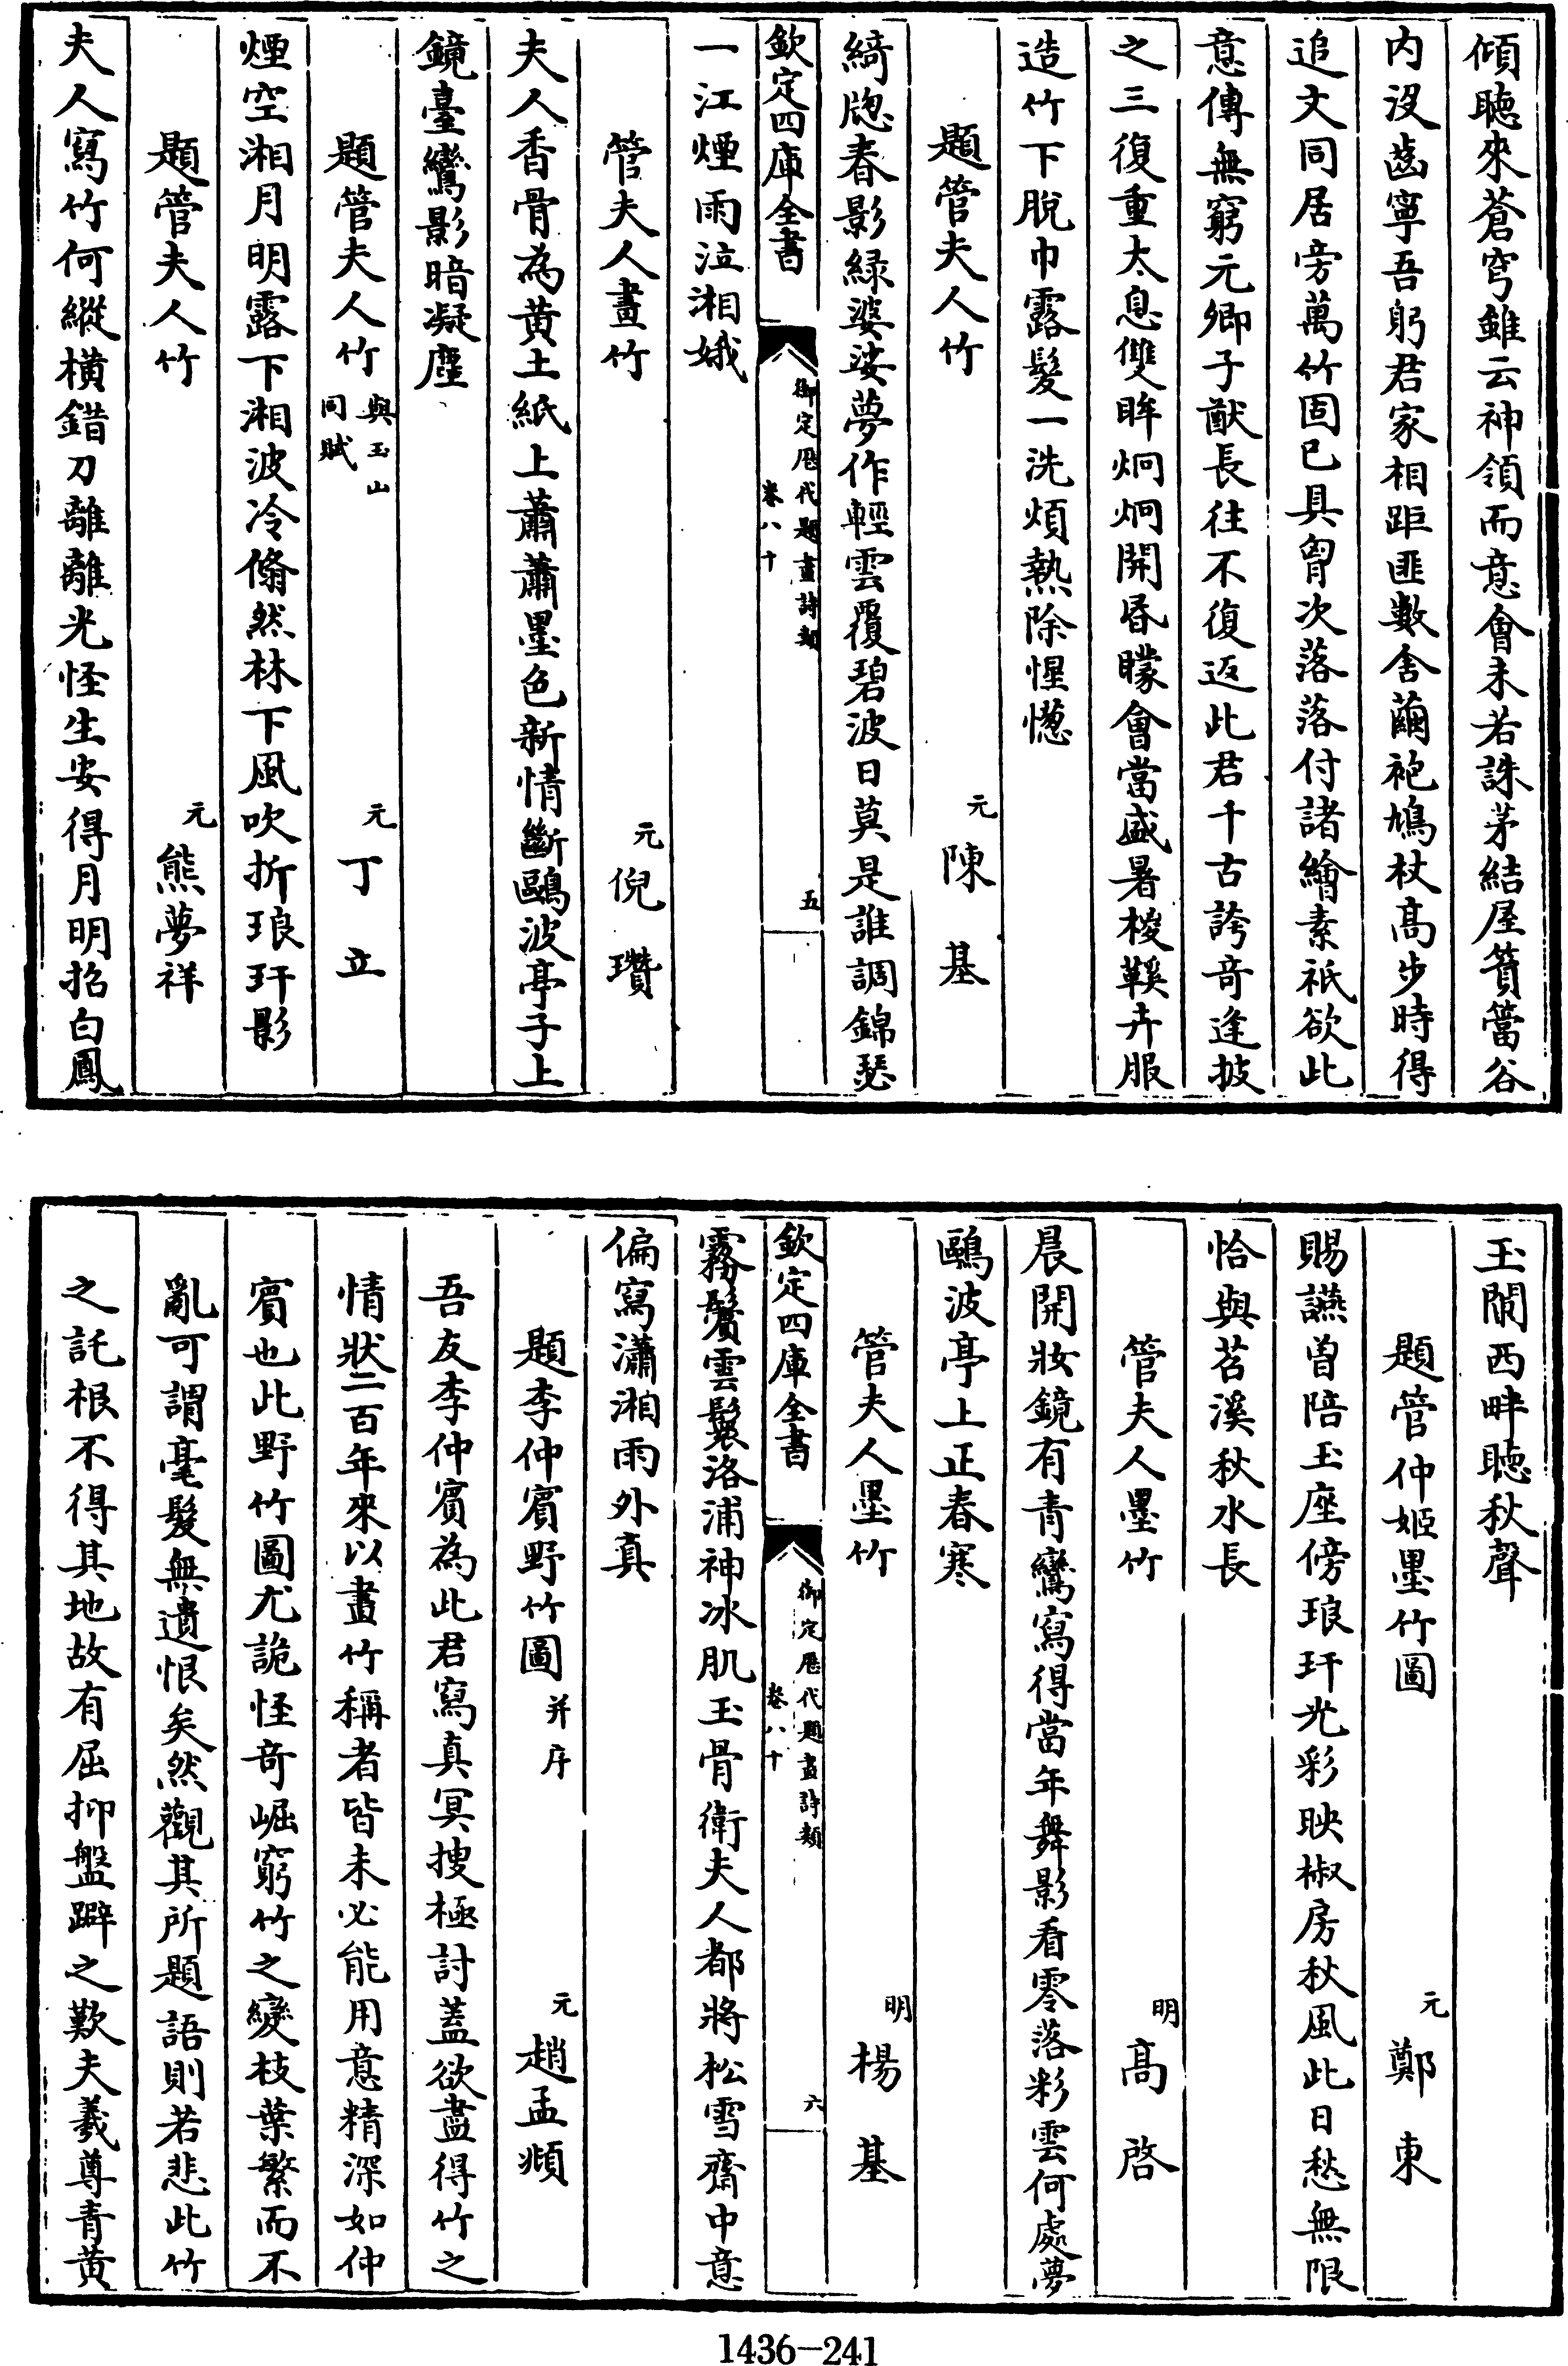 傾聽來蒼穹雖云神領而意會未若誅茅結屋篔簹谷
内没齒寧吾躬君家相距匪數舍繭袍鳩杖髙步時得
追文同居旁萬竹固已具胷次落落付諸繪素祇欲此
意傳無窮元卿子猷長往不復返此君千古誇竒逢披
之三復重太息雙眸炯炯開昬矇會當盛暑椶鞵卉服
造竹下脫巾露髮一洗煩熱除惺憽
題管夫人竹 元 陳基
綺牕春影緑婆娑夢作輕雲覆碧波日莫是誰調錦瑟
欽定四庫全書 御定歴代題畫詩類 卷八十 五
一江煙雨泣湘娥
管夫人畫竹 元 倪瓚
夫人香骨為黄土紙上蕭蕭墨色新情斷鷗波亭子上
鏡臺鸞影暗凝塵
題管夫人竹 與玉山同賦 元 丁立
煙空湘月明露下湘波冷翛然林下風吹折琅玕影
題管夫人竹 元 熊夢祥
夫人寫竹何縱横錯刀離離光怪生安得月明招白鳳
玉閒西畔聽秋聲
題管仲姬墨竹圖 元 鄭東
賜讌曽陪玉座傍琅玕光彩映椒房秋風此日愁無限
恰與苕溪秋水長
管夫人墨竹 明 髙啓
晨開妝鏡有青鸞寫得當年舞影看零落彩雲何處夢
鷗波亭上正春寒
管夫人墨竹 明 楊基
欽定四庫全書 御定歴代題畫詩類 卷八十 六
霧鬢雲鬟洛浦神冰肌玉骨衛夫人都將松雪齋中意
偏寫瀟湘雨外真
題李仲賔野竹圖 并序 元 趙孟頫
吾友李仲賔為此君寫真冥搜極討蓋欲盡得竹之
情狀二百年來以畫竹稱者皆未必能用意精深如仲
賔也此野竹圖尤詭怪竒崛窮竹之變枝葉繁而不
亂可謂毫髮無遺恨矣然觀其所題語則若悲此竹
之託根不得其地故有屈抑盤躃之歎夫羲尊青黄
1436-241